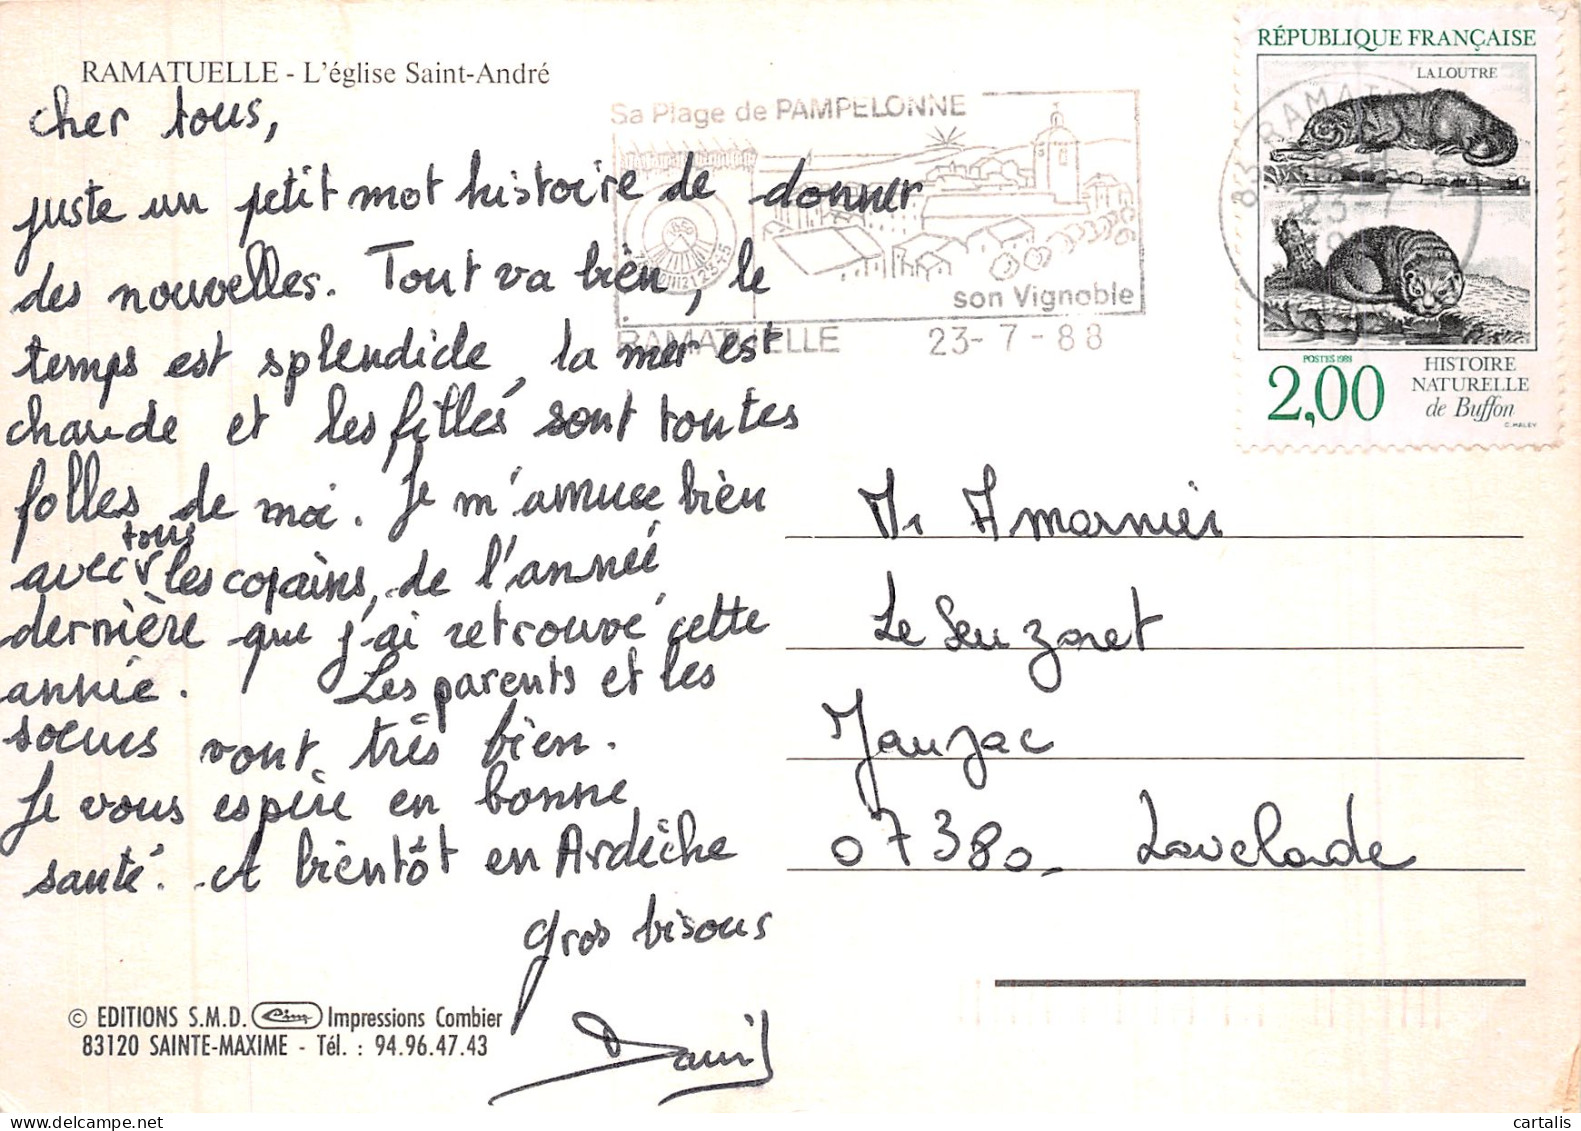 RAMATUELLE - L'église Saint-André
cher tous,
juste un petit mot histoire de donner
des nouvelles. Tout va bien, le
temps est splendide, la mer est
chaude et les filles sont toutes
folles de moi. Je m'amuse bien
tous
avec les copains, de l'année
dernière que j'ai retrouvé cette
année. Les parents et les
soeurs vont très bien.
Je vous espère en bonne
santé. A bientôt en Ardèche
gros bisous
David
© EDITIONS S.M.D. Cim Impressions Combier
83120 SAINTE-MAXIME - Tél. : 94.96.47.43
Sa Plage de PAMPELONNE
son Vignoble
RAMATUELLE 23-7-88
RÉPUBLIQUE FRANÇAISE
LA LOUTRE
POSTES 1988
2,00
HISTOIRE
NATURELLE
de Buffon
C. HALEY
83 RAMATU
23-7
Mr Amarnier
Le
Jaujac
07380 Lavelade
cartalis